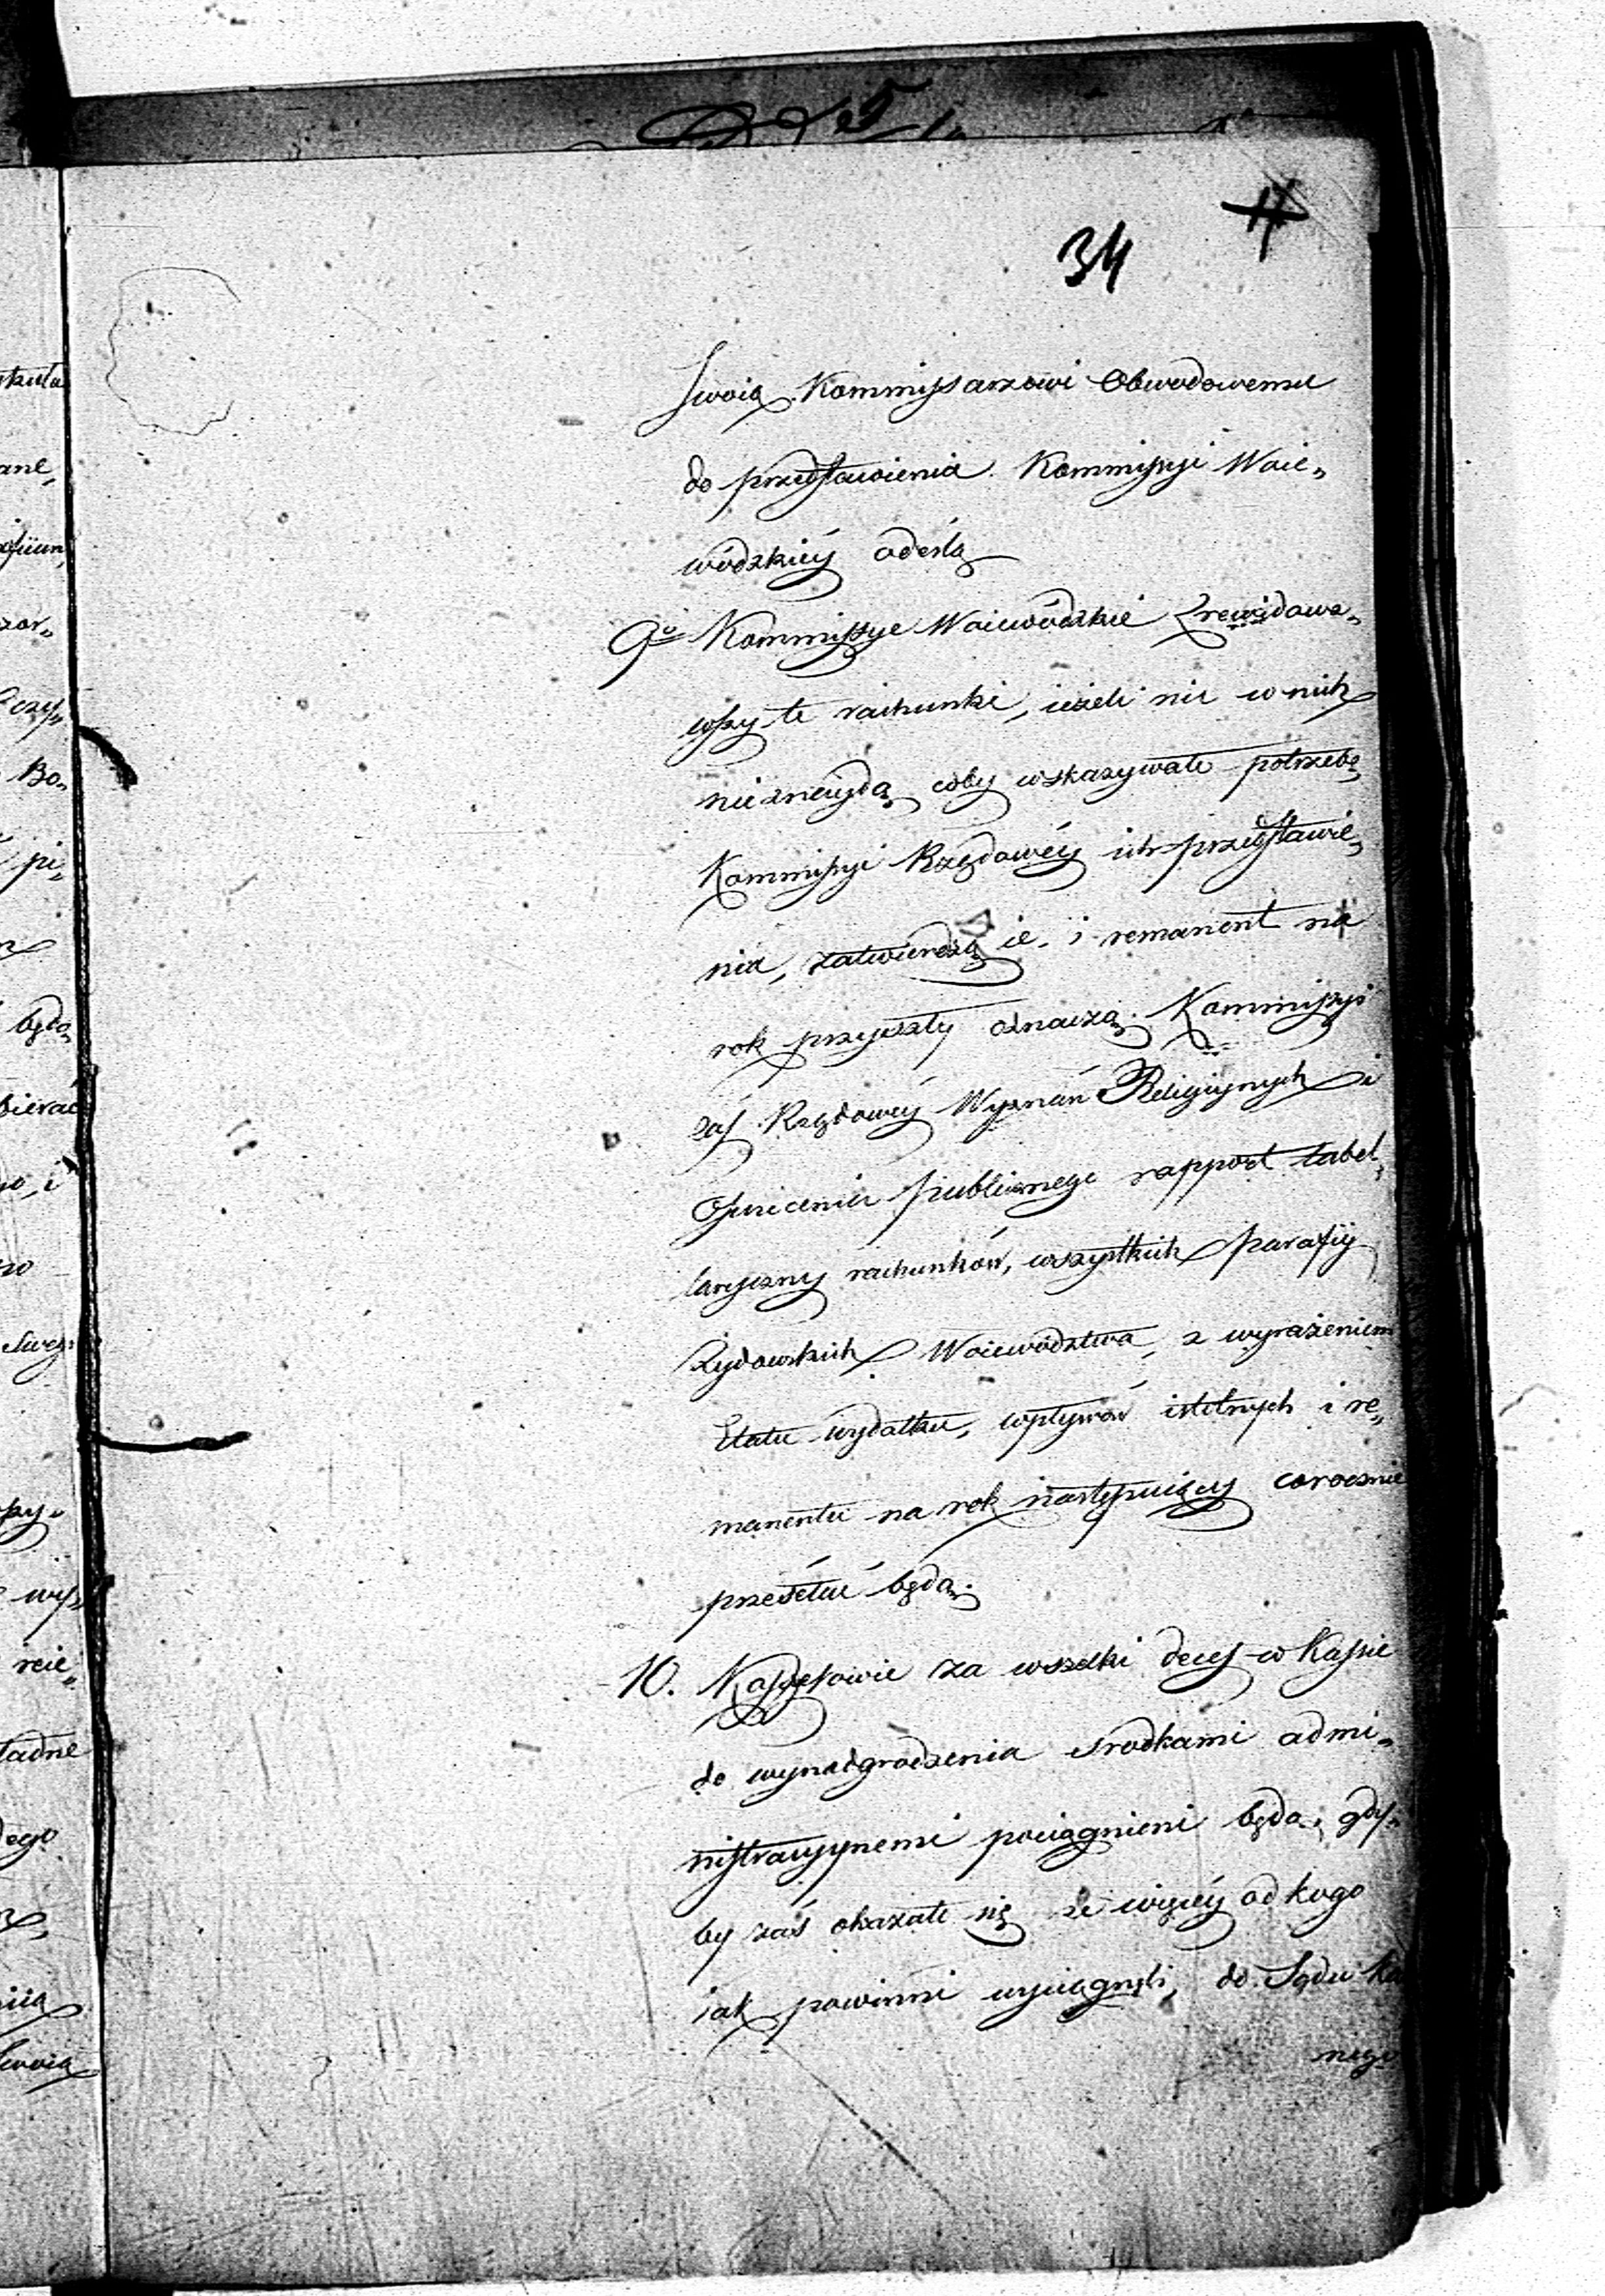 34
Swoią Kommissarzowi Obwodowemu
do przedstawienia Kommissyi Woie„
wódzkiéy odeślą
9o Kommissye Woiewódzkie zrewidowa„
wszy te rachunki, ieżeli nic w nich
nieznaydą coby wskazywało potrzebę
Kommissyi Rządowéy ich przedstawie„
nia, zatwierdzą ie i remanent na
rok przyszły oznaczą. Kommissyi
zaś Rządowéy Wyznań Religiynych i
Oświcenia publicznego rapport tabel„
laryczny rachunków, wszystkich parafiy
Żydowskich Woiewództwa, z wyrażeniem
Etatu wydatku, wpływów istotnych i re„
manentu na rok następuiący corocznie
przesełać będą.
10. Kassyerowie za wszelki deces w Kassie
do wynadgrodzenia srodkami admi„
nistracyynemi pociągnieni będą, gdy„
by zaś okazało się że więcéy od kogo
iak powinni wyciągnęli, do Sądu Kar
nego
skuła
ane,
zor„
czy„
Bo„
pi„
będą
bierać
o, i
swego
wy„
reie„
ładne
dego
Swoią